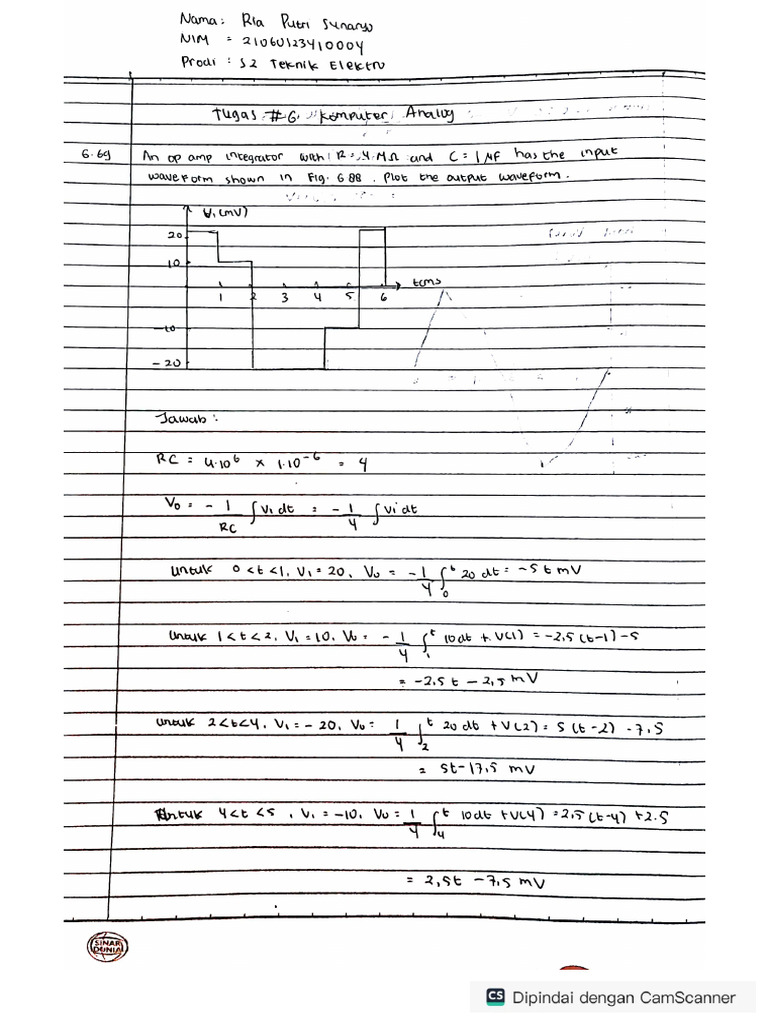 Nama: Ria Putri Sunaryo
NIM = 21060123410004
Prodi : S2 Teknik Elektro
Tugas #6 Komputer Analog
6.69 An op amp integrator with R = 4 MΩ and C = 1 μF has the input
waveform shown in Fig. 6.88. Plot the output waveform.
V₁(mV)
20
10
1 2 3 4 5 6 t(ms
-10
-20
Jawab :
RC = 4.10⁶ x 1.10⁻⁶ = 4
Vo = - 1/RC ∫ Vi dt = - 1/4 ∫ Vi dt
Untuk 0 < t < 1, V₁ = 20, Vo = - 1/4 ∫₀ᵗ 20 dt = -5t mV
Untuk 1 < t < 2, V₁ = 10, Vo = - 1/4 ∫₁ᵗ 10dt + V(1) = -2,5 (t-1) -5
= -2,5t - 2,5 mV
Untuk 2<t<4, V₁ = -20, Vo = 1/4 ∫₂ᵗ 20 dt + V(2) = 5 (t-2) - 7.5
= 5t-17,5 mV
Untuk 4<t<5, V₁ = -10, Vo = 1/4 ∫₄ᵗ 10dt + V(4) = 2,5 (t-4) +2.5
= 2,5t - 7,5 mV
SINAR
DUNIA
CS Dipindai dengan CamScanner